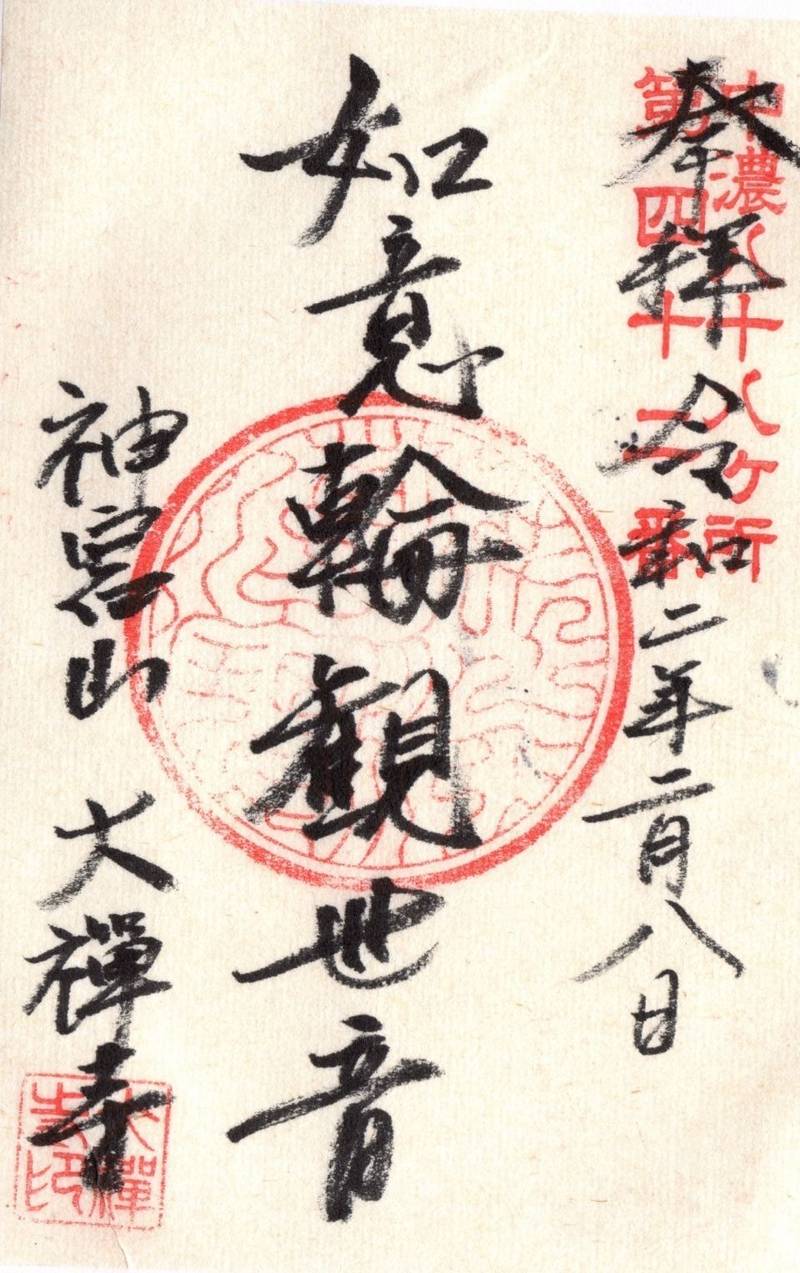 中濃八十八ヶ所
第四十 番
奉拝 令和二年二月八日
如意輪観世音
神宮山 大禪寺
大禪
寺印